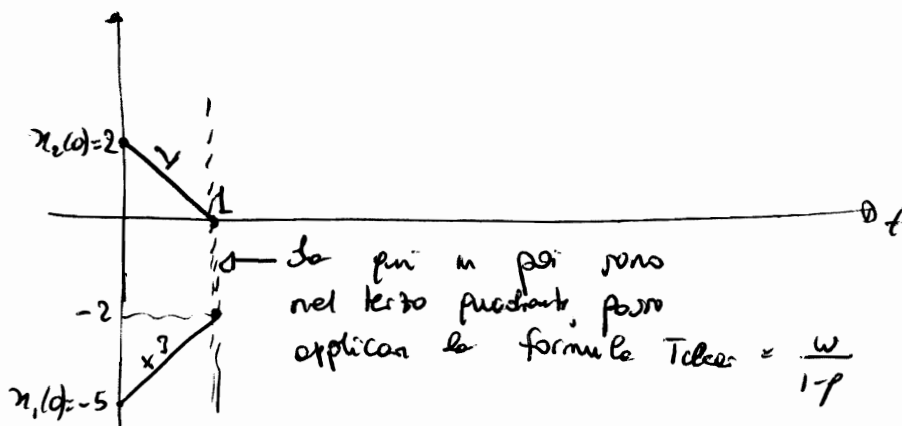 x₂(0)=2
1
t
Da qui in poi sono
-2
nel terzo quadrante posso
applicare la formula Tclear = w/(1-ρ)
x₁(0)=-5